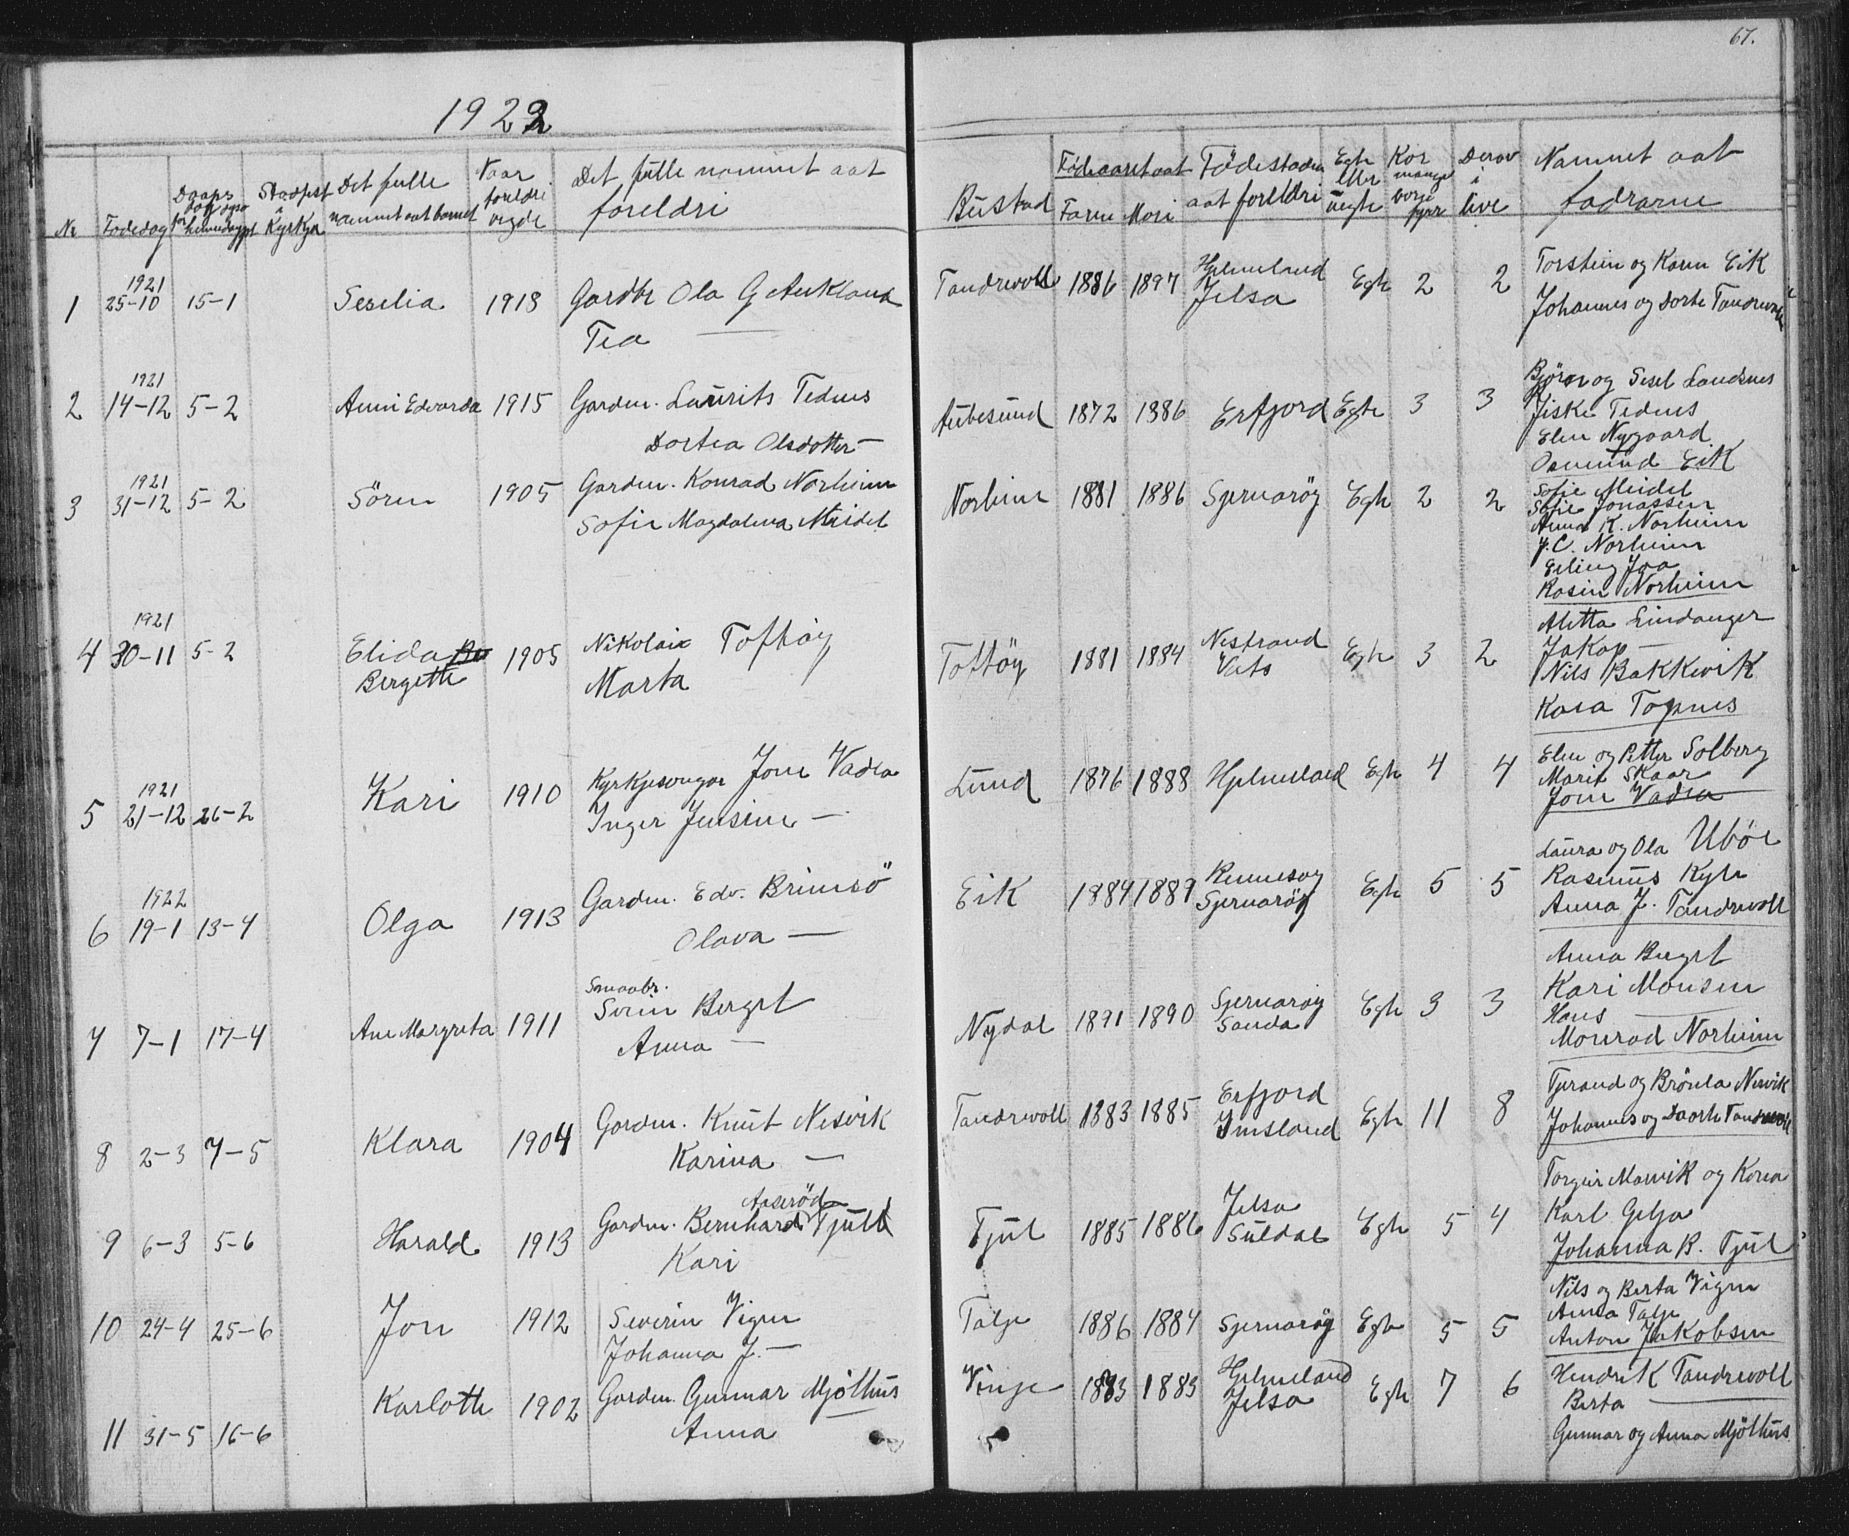 67.
1922
Nr
Fødedag
Daaps dag og so for heimedøypt
Stadfest i Kyrkja
Det fulle nammnet aat barnet
Naar foreldri vigde
Det fulle nammnet aat foreldri
Bustad
Fødeaaret aat
Faren Mori
Fødestaden aat foreldri
Egte eller uegte
Kor mange born fyrr
Derav i live
Namnet aat fadrarne
1 1921 25-10 15-1 Seselia 1918 Gardbr Ola G Aukland Tandrevoll 1886 1897 Hjelmeland Egte 2 2 Torstein og Karen Eik
Tea — Jelsa Johannes og Dorte Tandrevoll
2 1921 14-12 5-2 Anni Edvarda 1915 Gardm. Laurits Tednes Aubesund 1872 1886 Erfjord Egte 3 3 Bjørn og Sesel Landsnes
Dortea Olsdotter — Fiske Tednes
Elen Nygaard
Osmund Eik
3 1921 31-12 5-2 Søren 1905 Gardm. Konrad Norheim Norheim 1881 1886 Sjernarøy Egte 2 2 Sofie Meidel
Sofie Magdalena Meidel Sofie Jonassen
Anna K. Norheim
J.C. Norheim
Erling Joa
Rasin Norheim
4 1921 30-11 5-2 Elida Be 1905 Nikolai Toftøy Toftøy 1881 1884 Nestrand Egte 3 2 Aletta Lindanger
Bergette Marta Vats Jakop —
Nils Bakkevik
Kara Topnes
5 1921 21-12 26-2 Kari 1910 Kyrkjesongar Jone Vadla Lund 1876 1888 Hjelmeland Egte 4 4 Elen og Petter Solberg
Inger Jensine — Marit Skaar
Jone Vadla
6 1922 19-1 13-4 Olga 1913 Gardm. Edv. Brimsø Eik 1884 1889 Rennesøy Egte 5 5 Laura og Ola Ubøe
Olava — Sjernarøy Rasmus Kyte
Anna J. Tandrevoll
7 7-1 17-4 Ane Margreta 1911 Smaabr. Svein Berget Nydal 1891 1890 Sjernarøy Egte 3 3 Anna Berget
Anna — Sauda Kari Monsen
Hans —
Monrad Norheim
8 2-3 7-5 Klara 1904 Gardm. Knut Nesvik Tandrevoll 1883 1885 Erfjord Egte 11 8 Tjerand og Brønla Nesvik
Karina — Imsland Johannes og Daarte Tandrevoll
9 6-3 5-6 Harald 1913 Gardm. Bernhard Aaserød Tjull Tjul 1885 1886 Jelsa Egte 5 4 Torgeir Marvik og Korea
Kari Suldal Karl Gilja
Johanna R. Tjul
10 24-4 25-6 Jon 1912 Severin Vigen Talje 1886 1884 Sjernarøy Egte 5 5 Nils og Berta Vigen
Johanna J. — Anna Talje
Anton Jakobsen
11 31-5 16-6 Karlotte 1902 Gardm. Gunnar Mjølhus Vinje 1883 1883 Hjelmeland Egte 7 6 Hendrik Tandrevoll
Anna — Jelsa Berta —
Gunnar og Anna Mjølhus